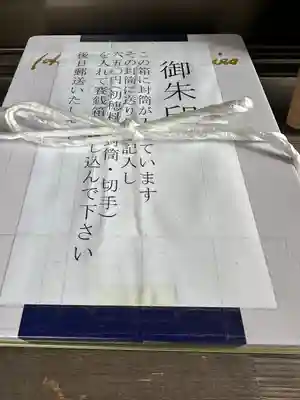 御朱印
この箱に封筒が
ています
その封筒に送り
記入し
六五〇円(初穂料
封筒・切手)
を入れて賽銭箱
し込んで下さい
後日郵送いたし